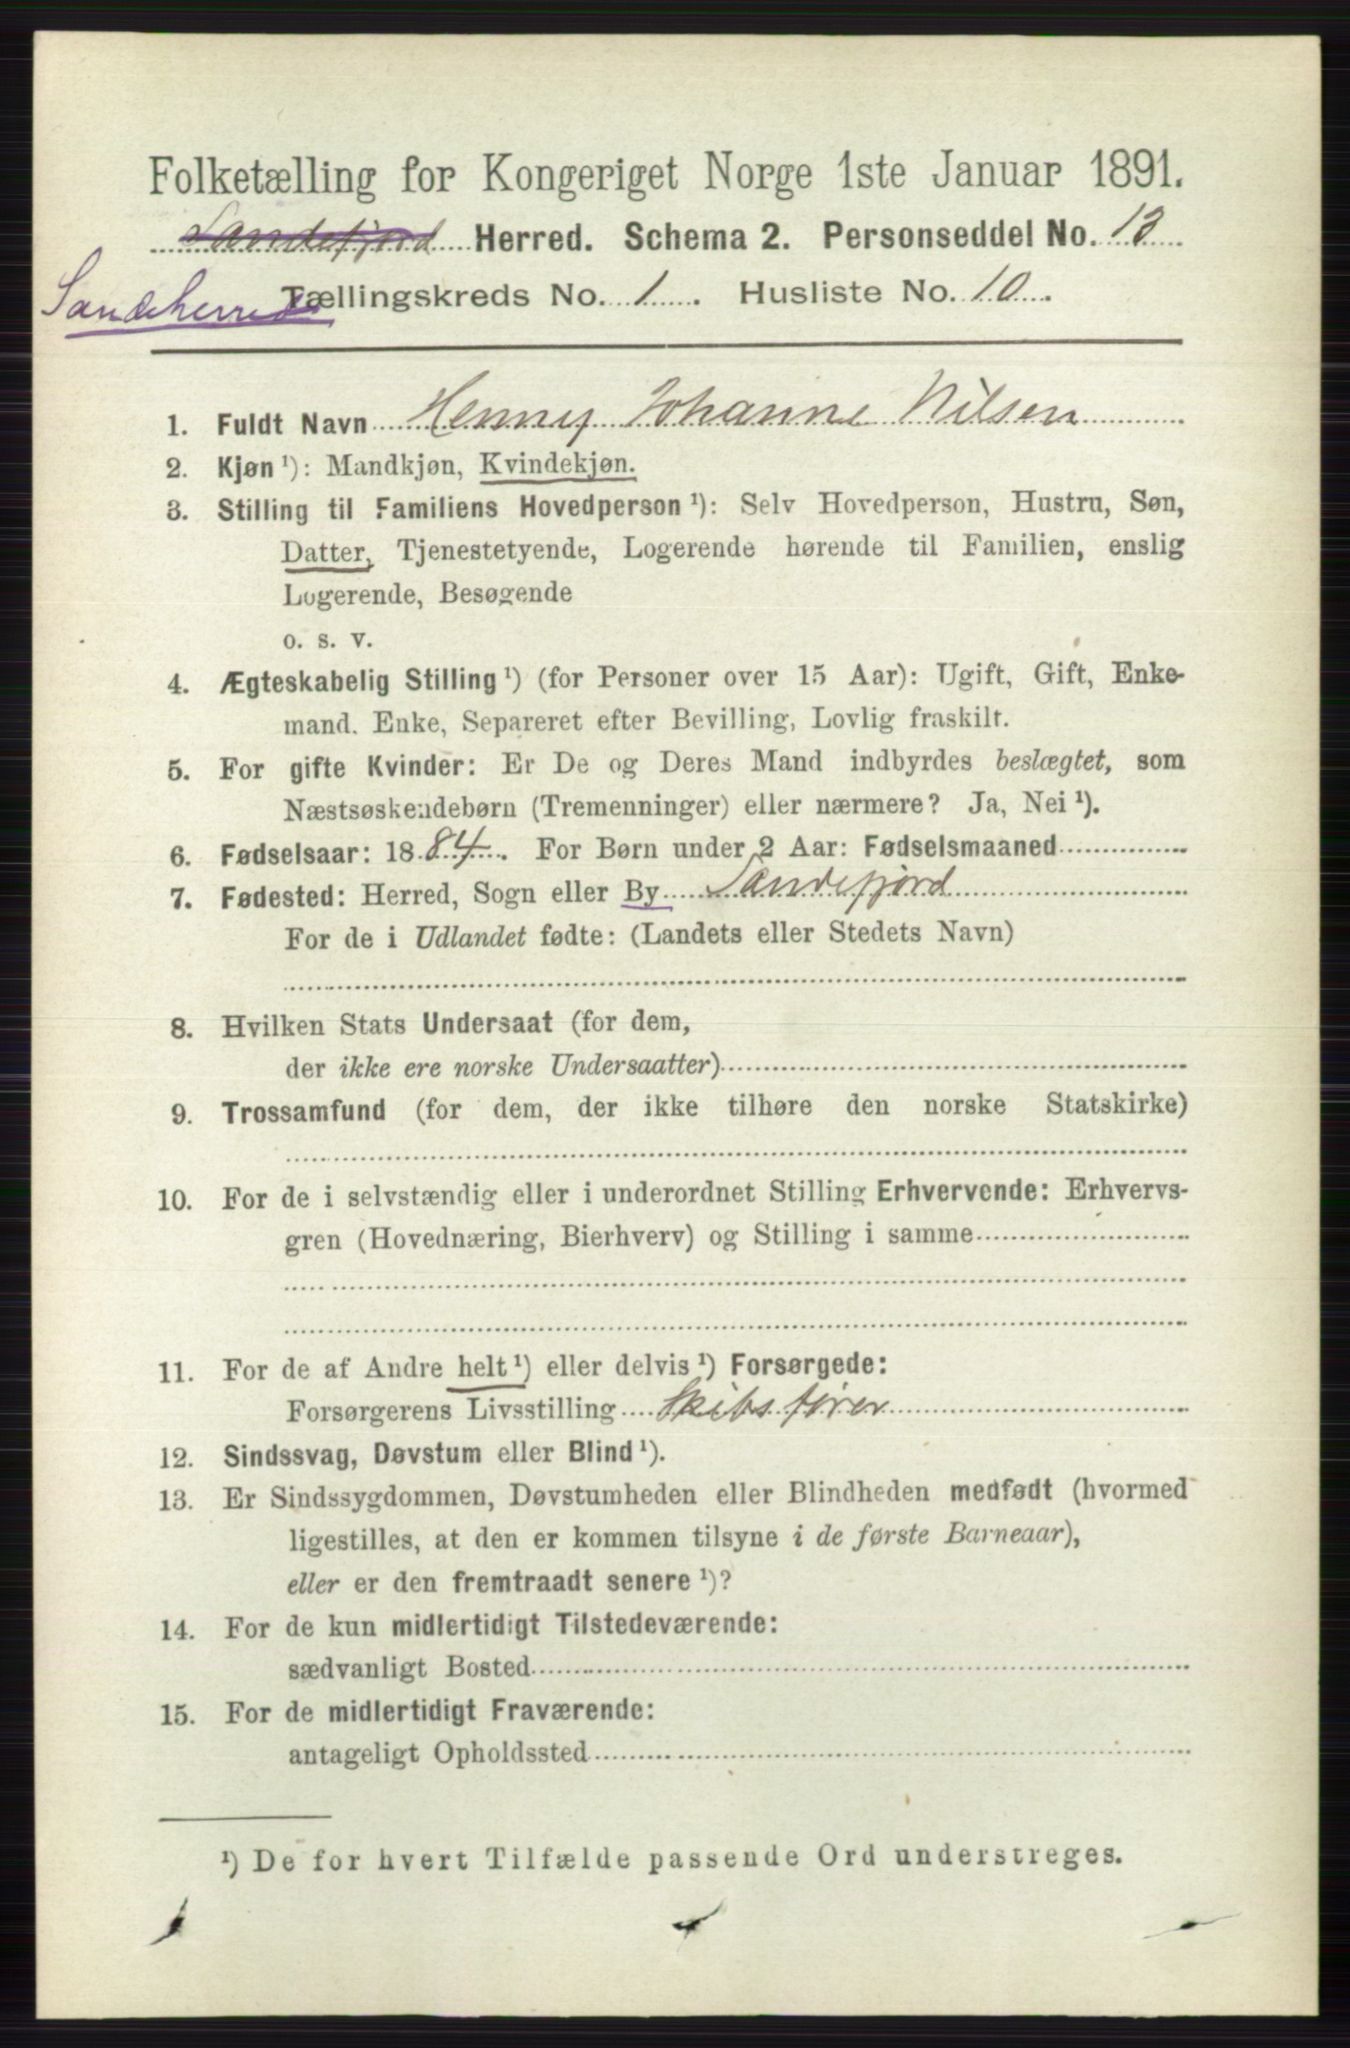 Folketælling for Kongeriget Norge 1ste Januar 1891.
Sandefjord Herred. Schema 2. Personseddel No. 13
Sandeherred
Tællingskreds No. 1. Husliste No. 10.
1. Fuldt Navn Henny Johanne Nilsen
2. Kjøn ¹): Mandkjøn, Kvindekjøn.
3. Stilling til Familiens Hovedperson ¹): Selv Hovedperson, Hustru, Søn,
Datter, Tjenestetyende, Logerende hørende til Familien, enslig
Logerende, Besøgende
o. s. v.
4. Ægteskabelig Stilling ¹) (for Personer over 15 Aar): Ugift, Gift, Enke-
mand. Enke, Separeret efter Bevilling, Lovlig fraskilt.
5. For gifte Kvinder: Er De og Deres Mand indbyrdes beslægtet, som
Næstsøskendebørn (Tremenninger) eller nærmere? Ja, Nei ¹).
6. Fødselsaar: 1884. For Børn under 2 Aar: Fødselsmaaned
7. Fødested: Herred, Sogn eller By Sandefjord
For de i Udlandet fødte: (Landets eller Stedets Navn)
8. Hvilken Stats Undersaat (for dem,
der ikke ere norske Undersaatter)
9. Trossamfund (for dem, der ikke tilhøre den norske Statskirke)
10. For de i selvstændig eller i underordnet Stilling Erhvervende: Erhvervs-
gren (Hovednæring, Bierhverv) og Stilling i samme
11. For de af Andre helt ¹) eller delvis ¹) Forsørgede:
Forsørgerens Livsstilling Skibsfører
12. Sindssvag, Døvstum eller Blind ¹).
13. Er Sindssygdommen, Døvstumheden eller Blindheden medfødt (hvormed
ligestilles, at den er kommen tilsyne i de første Barneaar),
eller er den fremtraadt senere ¹)?
14. For de kun midlertidigt Tilstedeværende:
sædvanligt Bosted
15. For de midlertidigt Fraværende:
antageligt Opholdssted
¹) De for hvert Tilfælde passende Ord understreges.